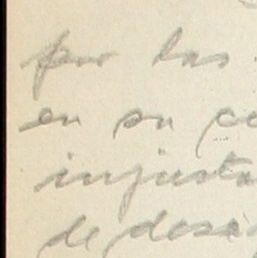 por las
en su co
injusta
de desa